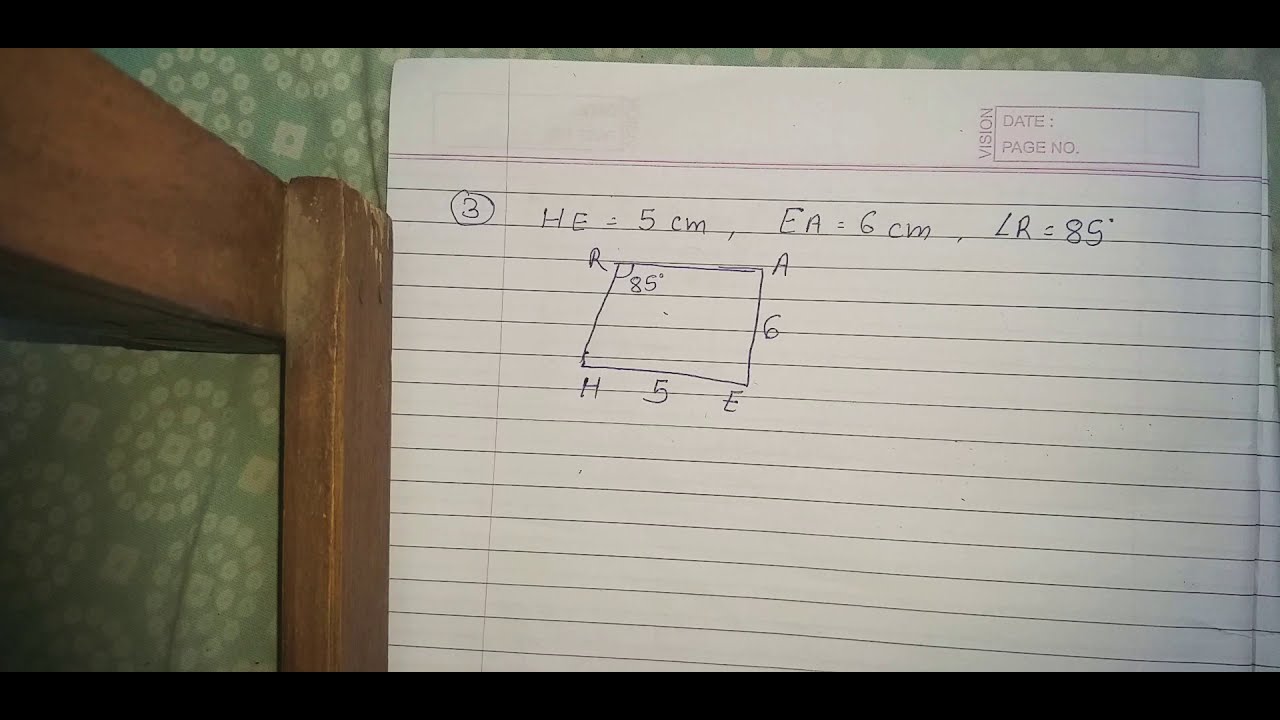 VISION
DATE :
PAGE NO.
③ HE = 5 cm, EA = 6 cm, ∠R = 85°
R A
85°
6
H 5 E